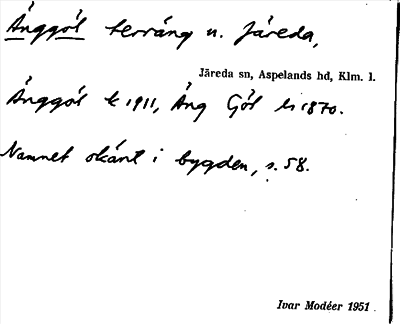 Änggöl terräng n. Järeda,
Järeda sn, Aspelands hd, Klm. l.
Änggöl k 1911, Äng Göl hs 1870.
Namnet okänt i bygden, s. 58.
Ivar Modéer 1951